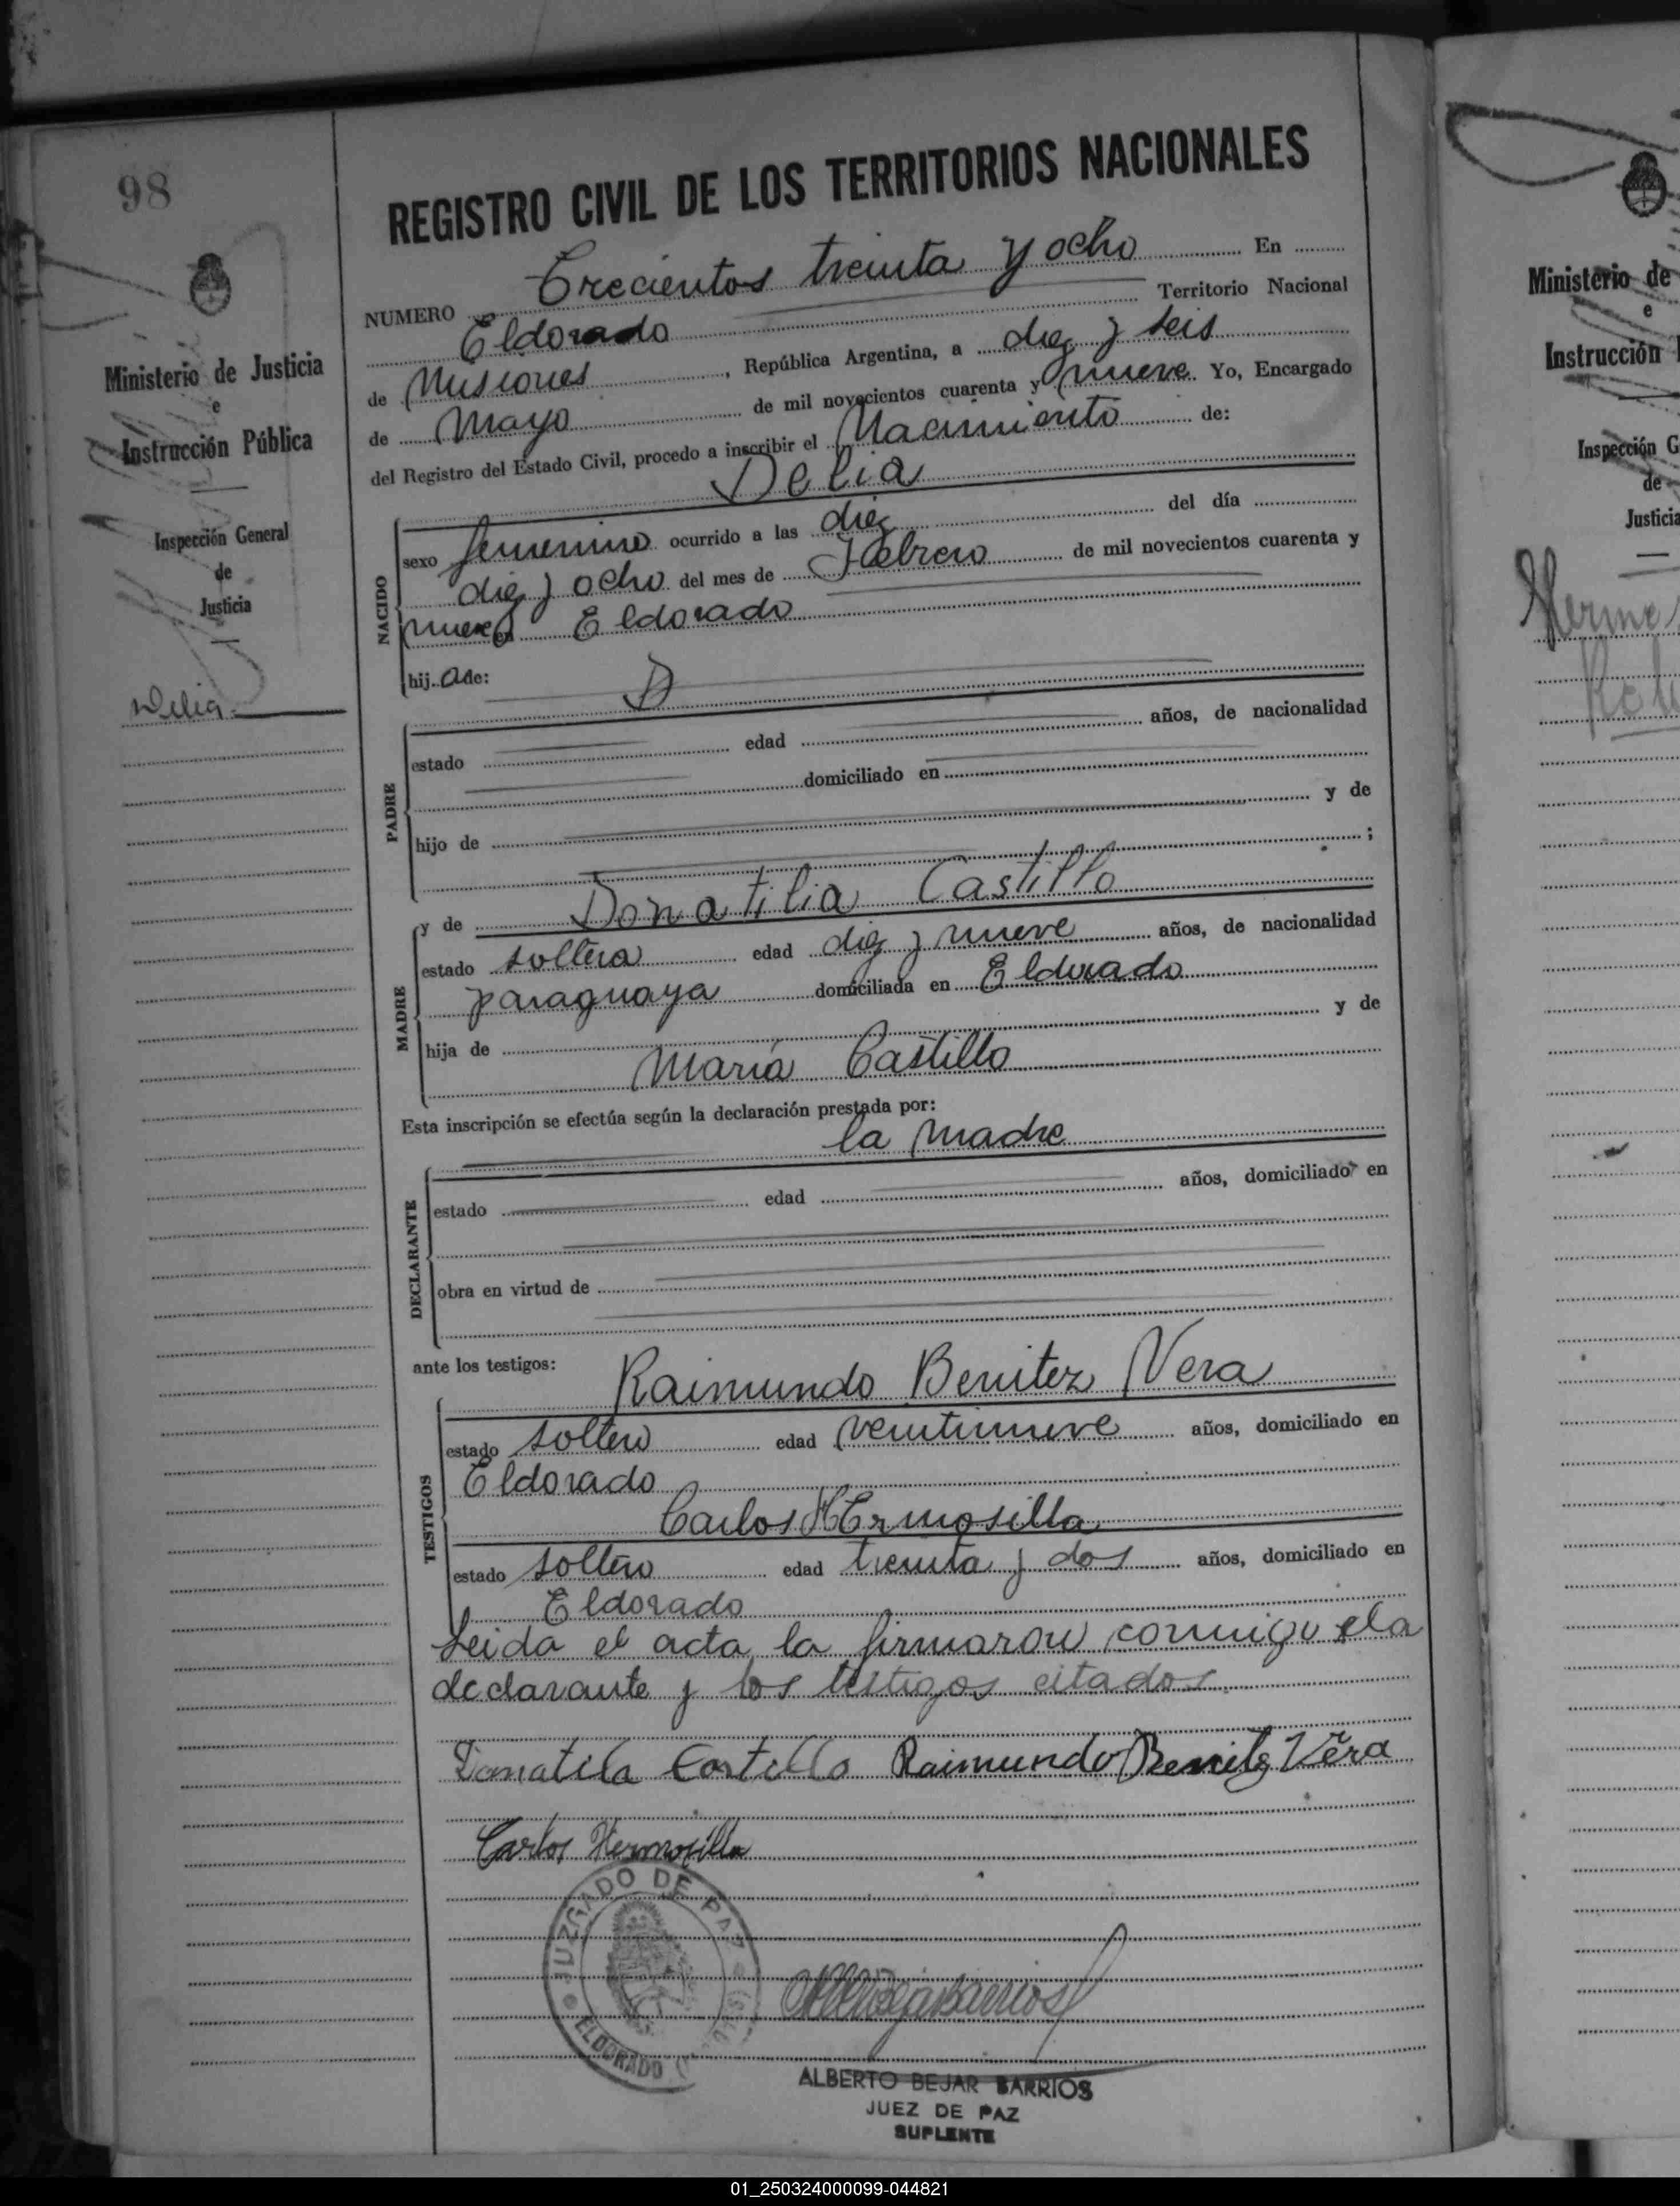 98
Ministerio de Justicia
e
Instrucción Pública
Inspección General
de
Justicia
Delia
REGISTRO CIVIL DE LOS TERRITORIOS NACIONALES
NUMERO Trecientos treinta y ocho En
Eldorado Territorio Nacional
de Misiones, República Argentina, a diez y seis
de Mayo de mil novecientos cuarenta y nueve Yo, Encargado
del Registro del Estado Civil, procedo a inscribir el Nacimiento de:
Delia
NACIDO
sexo femenino ocurrido a las diez del día
diez y ocho del mes de Febrero de mil novecientos cuarenta y
nueve en Eldorado
hij a de:
PADRE
estado edad años, de nacionalidad
domiciliado en
hijo de y de
;
MADRE
y de Donatilia Castillo
estado soltera edad diez y nueve años, de nacionalidad
paraguaya domiciliada en Eldorado
hija de y de
María Castillo
Esta inscripción se efectúa según la declaración prestada por:
la madre
DECLARANTE
estado edad años, domiciliado en
obra en virtud de
ante los testigos:
Raimundo Benitez Vera
TESTIGOS
estado soltero edad veintinueve años, domiciliado en
Eldorado
Carlos Hermosilla
estado soltero edad treinta y dos años, domiciliado en
Eldorado
Leida el acta la firmaron conmigo la
declarante y los testigos citados
Donatila Castillo Raimundo Benitez Vera
Carlos Hermosilla
JUZGADO DE PAZ
ELDORADO
ALBERTO BEJAR BARRIOS
JUEZ DE PAZ
SUPLENTE
Ministerio de
e
Instrucción
Inspección G
de
Justicia
01_250324000099-044821